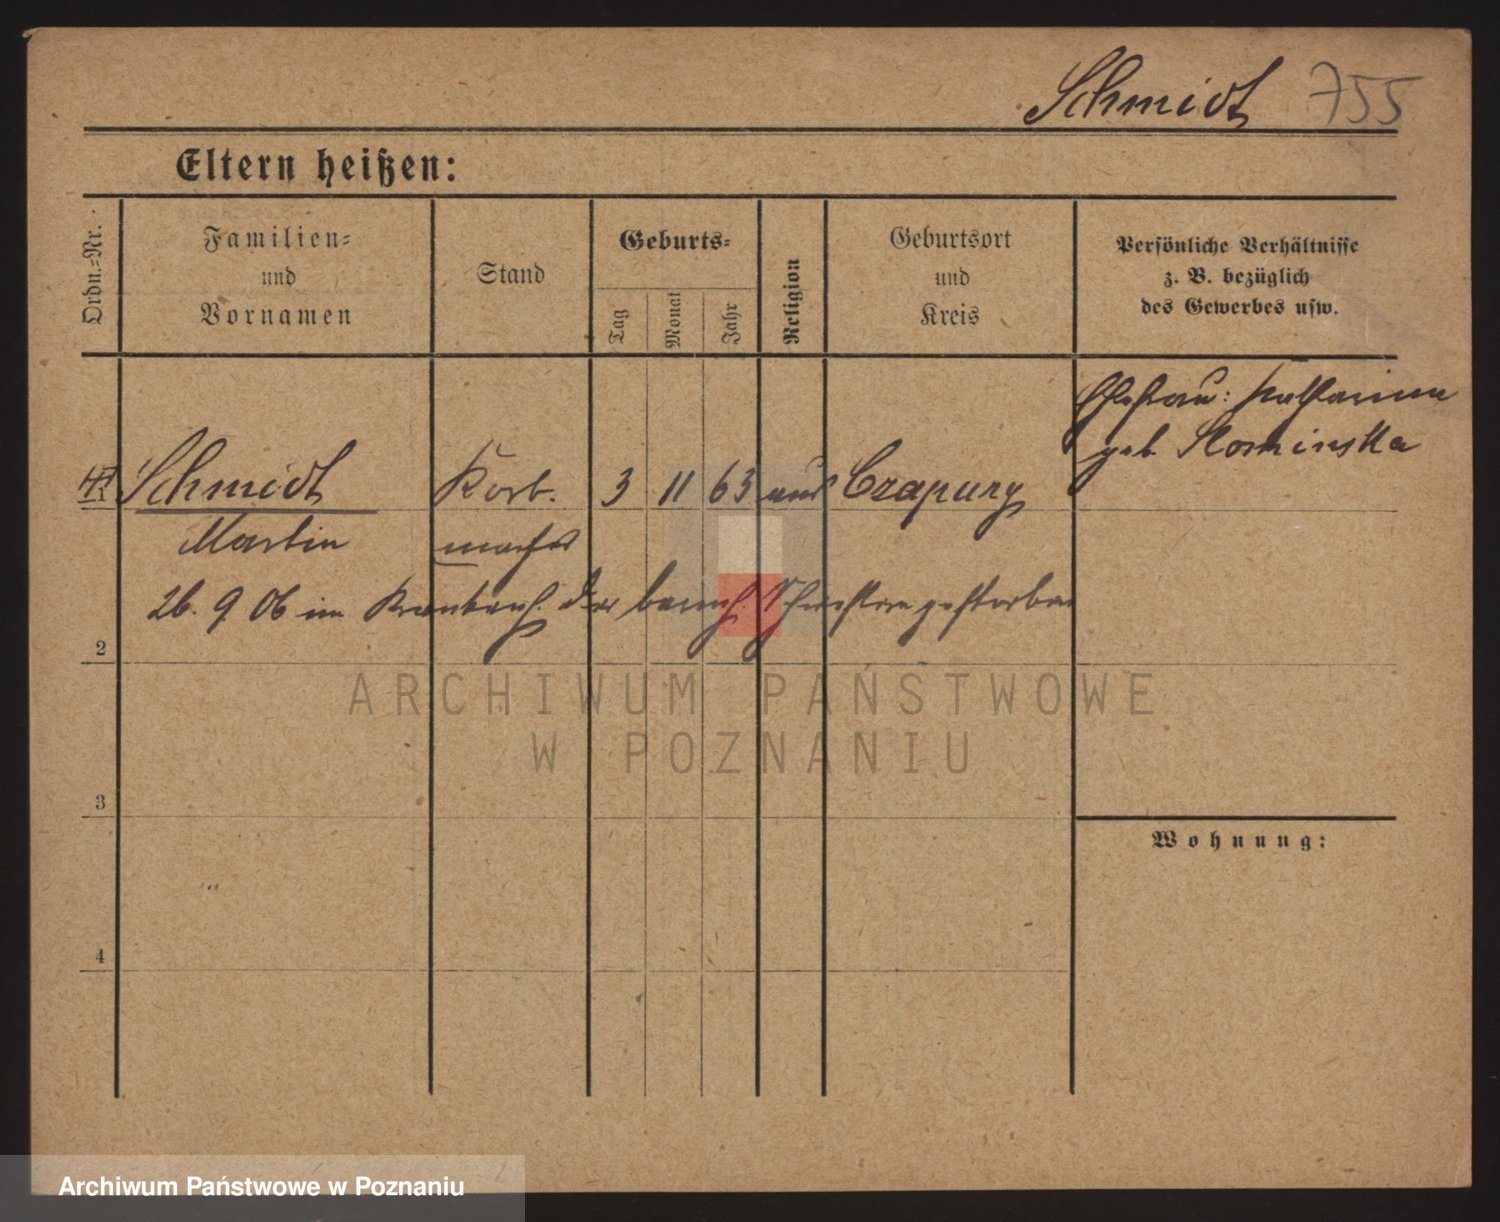 Schmidt 755
Eltern heißen:
Ordn.-Nr.
Familien-
und
Vornamen
Stand
Geburts-
Tag
Monat
Jahr
Religion
Geburtsort
und
Kreis
Persönliche Verhältnisse
z. B. bezüglich
des Gewerbes usw.
Ehefrau: Katharina
geb Slominska
Schmidt Korb. 3 11 63 Czapury
Martin macher
26. 9 06 im Krankenh. der barmh. Schwestern gestorben
2
3
4
Wohnung:
ARCHIWUM PAŃSTWOWE
W POZNANIU
Archiwum Państwowe w Poznaniu